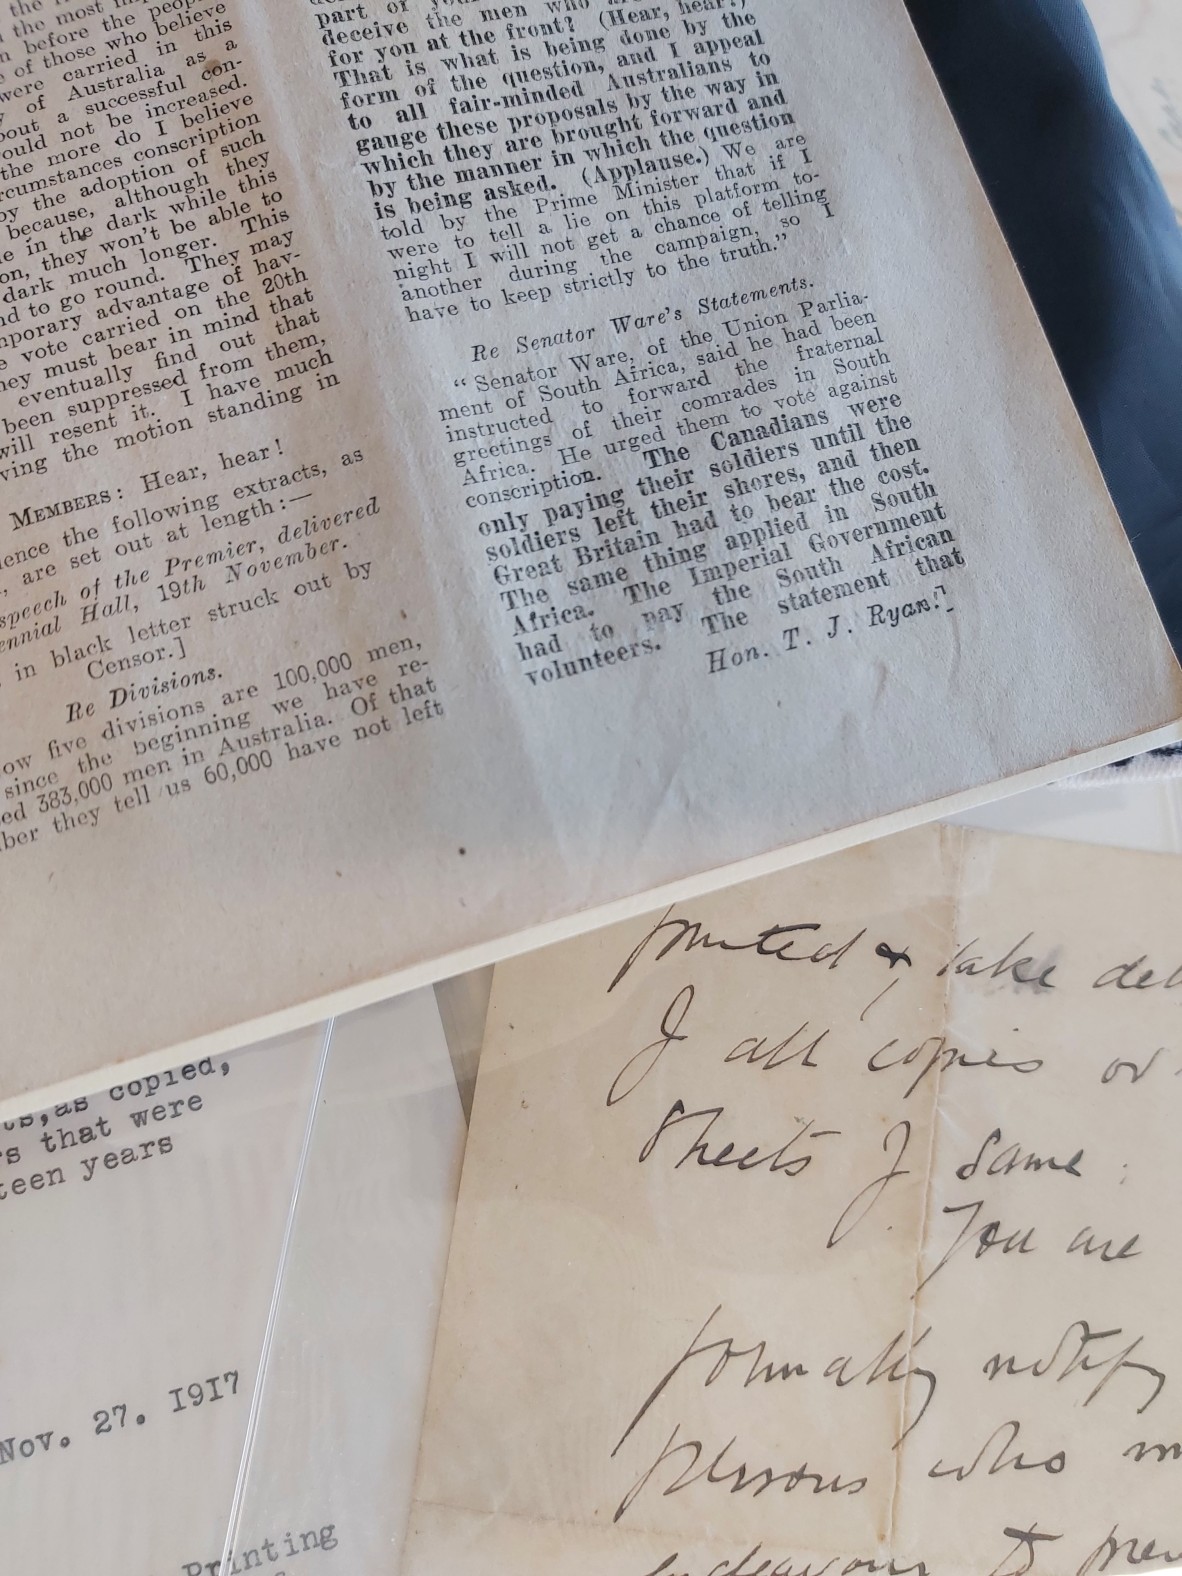 the most
n before the peop
e of those who believe
were carried in this
of Australia as a
bout a successful con-
ould not be increased.
the more do I believe
rcumstances conscription
by the adoption of such
because, although they
e in the dark while this
on, they won't be able to
dark much longer. This
nd to go round. They may
mporary advantage of hav-
e vote carried on the 20th
hey must bear in mind that
eventually find out that
been suppressed from them,
will resent it. I have much
ving the motion standing in
MEMBERS: Hear, hear!
ience the following extracts, as
, are set out at length:—
speech of the Premier, delivered
ennial Hall, 19th November.
in black letter struck out by
Censor.]
Re Divisions.
ow five divisions are 100,000 men,
since the beginning we have re-
ed 383,000 men in Australia. Of that
ber they tell us 60,000 have not left
part of
deceive the men who
for you at the front? (Hear, hear!)
That is what is being done by the
form of the question, and I appeal
to all fair-minded Australians to
gauge these proposals by the way in
which they are brought forward and
by the manner in which the question
is being asked. (Applause.) We are
told by the Prime Minister that if I
were to tell a lie on this platform to-
night I will not get a chance of telling
another during the campaign, so I
have to keep strictly to the truth."
Re Senator Ware's Statements.
"Senator Ware, of the Union Parlia-
ment of South Africa, said he had been
instructed to forward the fraternal
greetings of their comrades in South
Africa. He urged them to vote against
conscription. The Canadians were
only paying their soldiers until the
soldiers left their shores, and then
Great Britain had to bear the cost.
The same thing applied in South
Africa. The Imperial Government
had to pay the South African
volunteers. The statement that
Hon. T. J. Ryan."]
ts,as copied,
rs that were
teen years
Nov. 27. 1917
Printing
printed & take del
of all copies or
sheets of same.
You are
formally notify
persons who m
endeavour to prev